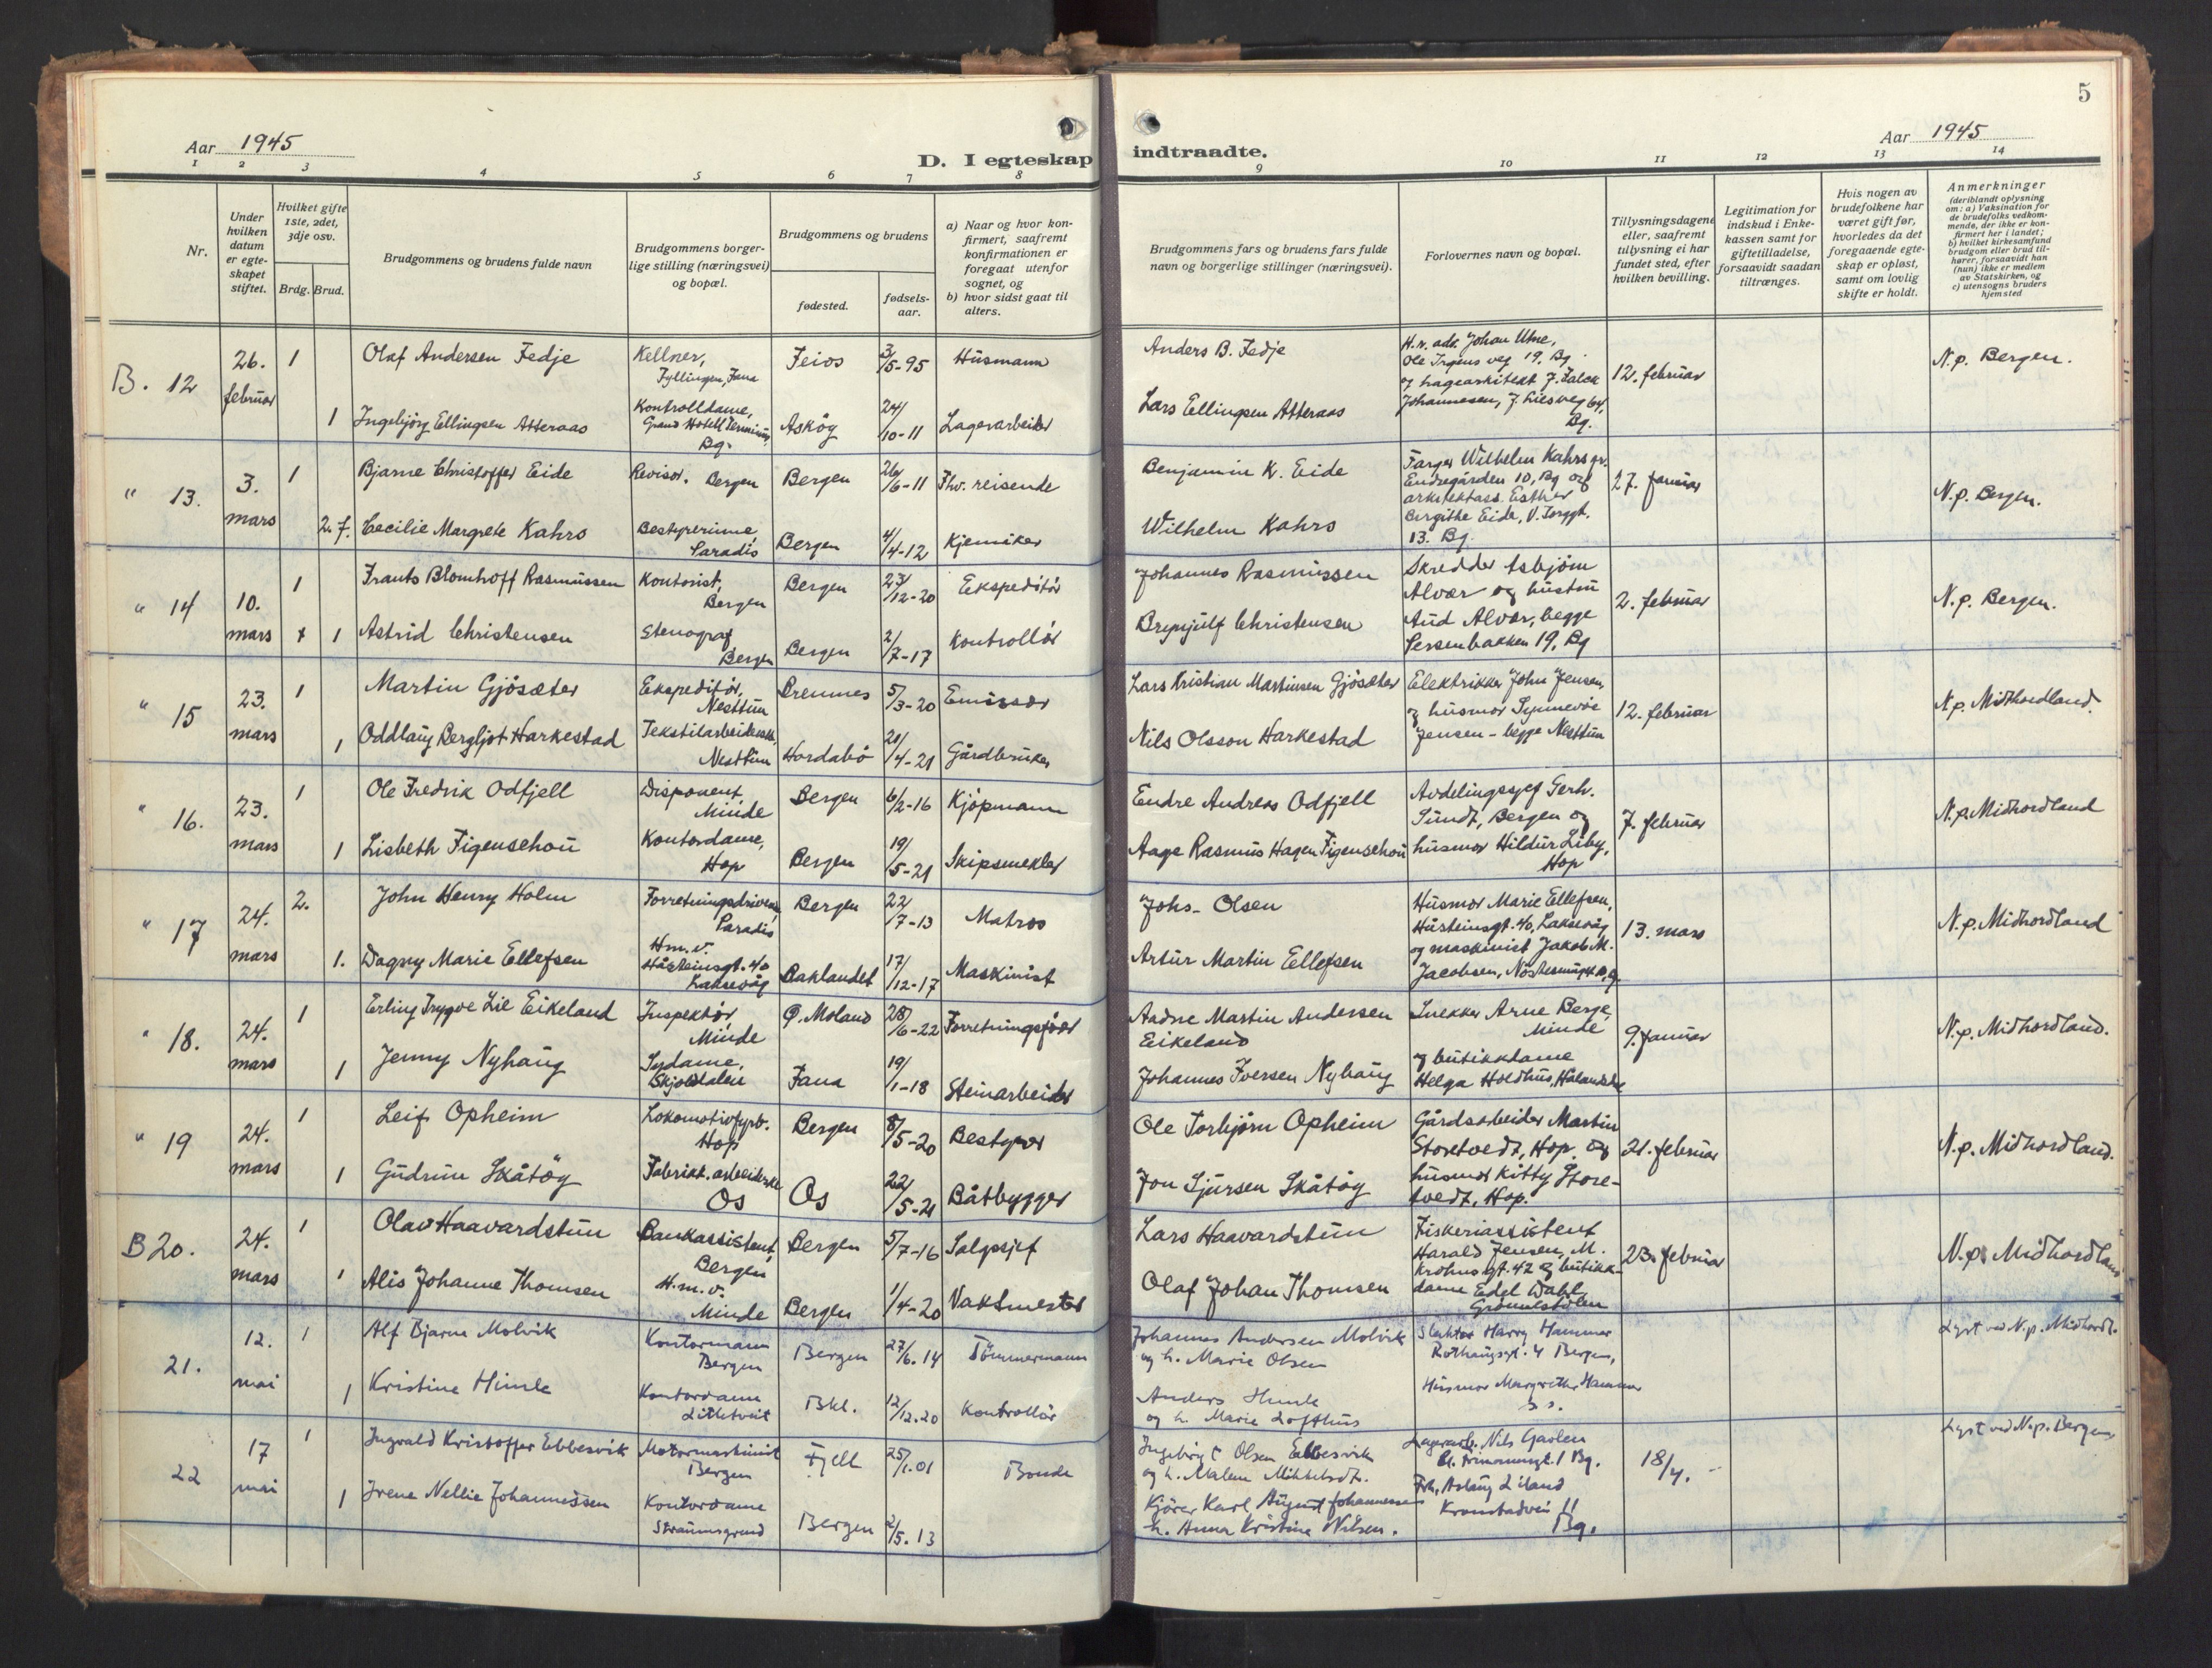 5
Aar 1945
Aar 1945
D. I egteskap indtraadte.
1 2 3 4 5 6 7 8 9 10 11 12 13 14
Nr.
Under hvilken datum er egteskapet stiftet.
Hvilket gifte 1ste, 2det, 3dje osv.
Brdg. Brud.
Brudgommens og brudens fulde navn
Brudgommens borgerlige stilling (næringsvei) og bopæl.
Brudgommens og brudens
fødested.
fødselsaar.
a) Naar og hvor konfirmert, saafremt konfirmationen er foregaat utenfor sognet, og
b) hvor sidst gaat til alters.
Brudgommens fars og brudens fars fulde navn og borgerlige stillinger (næringsvei).
Forlovernes navn og bopæl.
Tillysningsdagene eller, saafremt tillysning ei har fundet sted, efter hvilken bevilling.
Legitimation for indskud i Enkekassen samt for giftetilladelse, forsaavidt saadan tiltrænges.
Hvis nogen av brudefolkene har været gift før, hvorledes da det foregaaende egteskap er opløst, samt om lovlig skifte er holdt.
Anmerkninger
(deriblandt oplysning om: a) Vaksination for de brudefolks vedkommende, der ikke er konfirmert her i landet;
b) hvilket kirkesamfund brudgom eller brud tilhører, forsaavidt han (hun) ikke er medlem av Statskirken, og
c) utensogns bruders hjemsted
B. 12 26. februar 1 Olaf Andersen Fedje Kellner, Fyllingen, Fana Feios 3/5-95 Husmann Anders B. Fedje
1 Ingebjørg Ellingsen Atteraas Kontrolldame, Grand Hotell Terminus, Bg. Askøy 24/10-11 Lagerarbeider Lars Ellingsen Atteraas
H.r. adv. Johan Utne,
Ole Irgens veg 19, Bg.
og hagearkitekt F. Falck
Johannesen, J. Liesveg 64,
Bg.
12. februar N.p. Bergen.
" 13. 3. mars 1 Bjarne Christoffer Eide Revisor. Bergen Bergen 26/6-11 Fhv. reisende Benjamin K. Eide
2. f. Cecilie Margrete Kahrs Bestyrerinne, Paradis Bergen 4/4-12 Kjemiker Wilhelm Kahrs
Farger Wilhelm Kahrs jr.
Endregården 10, Bg og
arkitektass. Esther
Birgithe Eide, V. Torggt.
13. Bg.
27. januar N.p. Bergen.
" 14 10. mars 1 Frants Blomhoff Rasmussen Kontorist, Bergen Bergen 23/12-20 Ekspeditør Johannes Rasmussen
1 Astrid Christensen Stenograf Bergen Bergen 2/7-17 Kontrollør Brynjulf Christensen
Skredder Asbjørn
Alvær og hustru
Aud Alvær, begge
Persenbakken 19, Bg
2. februar N.p. Bergen.
" 15 23. mars 1 Martin Gjøsæter Ekspeditør, Nesttun Bremnes 5/3-20 Emissær Lars Kristian Martinsen Gjøsæter
1 Oddlaug Bergljot Harkestad Tekstilarbeiderske, Nesttun Hordabø 21/4-21 Gårdbruker Nils Olsson Harkestad
Elektriker John Jensen,
og husmor Synnøve
Jensen - begge Nesttun
12. februar N.p. Midhordland.
" 16. 23. mars 1 Ole Fredrik Odfjell Disponent, Minde Bergen 6/2-16 Kjøpmann Endre Andreas Odfjell
1 Lisbeth Figenschou Kontordame, Hop Bergen 19/5-21 Skipsmekler Aage Rasmus Hagen Figenschou
Avdelingssjef Gerh.
Sundt, Bergen og
husmor Hildur Liby,
Hop
7. februar N.p. Midhordland
" 17 24. mars 2. John Henry Holm Forretningsdrivende, Paradis Bergen 22/7-13 Matros Johs. Olsen
1. Dagny Marie Ellefsen H.m.v. Håsteinsgt. 40 Laksevåg Baklandet 17/12-17 Maskinist Artur Martin Ellefsen
Husmor Marie Ellefsen,
Håsteinsgt. 40, Laksevåg
og maskinist Jakob M.
Jacobsen,
13. mars N.p. Midhordland
" 18. 24. mars 1 Erling Trygve Lie Eikeland Inspektør, Minde Ø. Moland 28/6-22 Forretningsfører Aadne Martin Andersen Eikeland
1 Jenny Nyhaug Sydame, Skjoldalen Fana 19/1-18 Steinarbeider Johannes Iversen Nyhaug
Snekker Arne Berge,
Minde
og butikkdame
Helga Holdhus,
9. januar N.p. Midhordland.
" 19 24. mars 1 Leif Opheim Lokomotivfyrb. Hop Bergen 8/5-20 Bestyrer Ole Torbjørn Opheim
1 Gudrun Skåtøy Fabrikk.arbeiderske Os Os 22/5-21 Båtbygger Jon Sjursen Skåtøy
Gårdsarbeider Martin
Storetvedt, Hop, og
husmor Kitty Store-
tvedt, Hop.
21. februar N.p. Midhordland.
B 20. 24. mars 1 Olav Haavardstun Bankassistent, Bergen Bergen 5/7-16 Salgssjef Lars Haavardstun
1 Alis Johanne Thomsen H.m.v. Minde Bergen 1/4-20 Vaktmester Olaf Johan Thomsen
Fiskeriassistent
Harald Jensen, M.
Krohns gt. 42 og butikk-
dame Edel Dahl,
23. februar N.p. Midhordland
21. 12. mai 1 Alf Bjarne Molvik Kontormann Bergen Bergen 27/6.14 Tømmermann Johannes Andersen Molvik og h. Marie Olsen
1 Kristine Himle Kontordame Bkl. 12/12.20 Kontrollør Anders Himle og h. Marie Lofthus
Slakter Harry Hammer
Rothaugsgt. 4 Bergen,
Husmor Margrethe Hammer
s.s.
Lyst ved N.p. Midhordl.
22 17 mai 1 Ingvald Kristoffer Ebbesvik Motormaskinist Bergen Fjell 25/1.01 Bonde Ingebrigt Olsen Ebbesvik og h. Malene Mikkelsdtr.
1 Irene Nellie Johannessen Kontordame Straumsgrend Bergen 2/5.13 Kjører Karl August Johannessen h. Anna Kristine Nilsen.
Lagerarb. Nils Garlen
1 Bg.
Frk. Aslaug Liland
Kronstadvei 11
Bg.
18/4. - Lyst ved N.p. Bergen